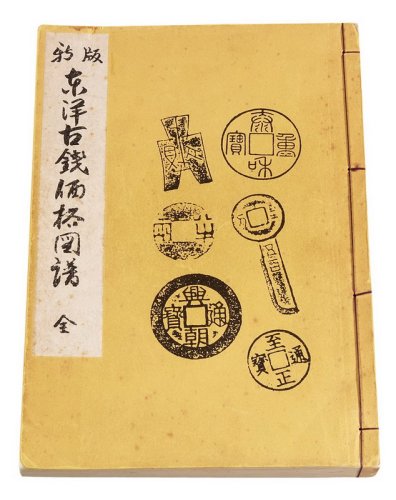 新版
東洋古錢価格図譜
全
泰和重寶
興朝通寶
至正通寶